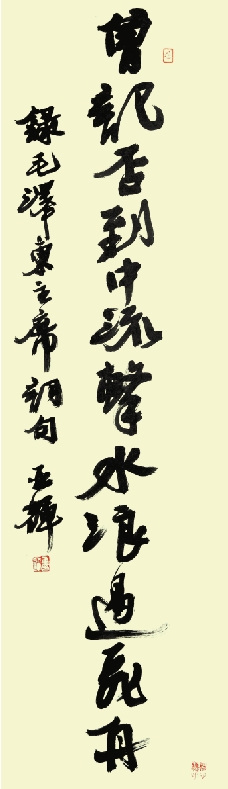 曾記否到中流擊水浪遏飛舟
錄毛澤東主席詞句 亚輝